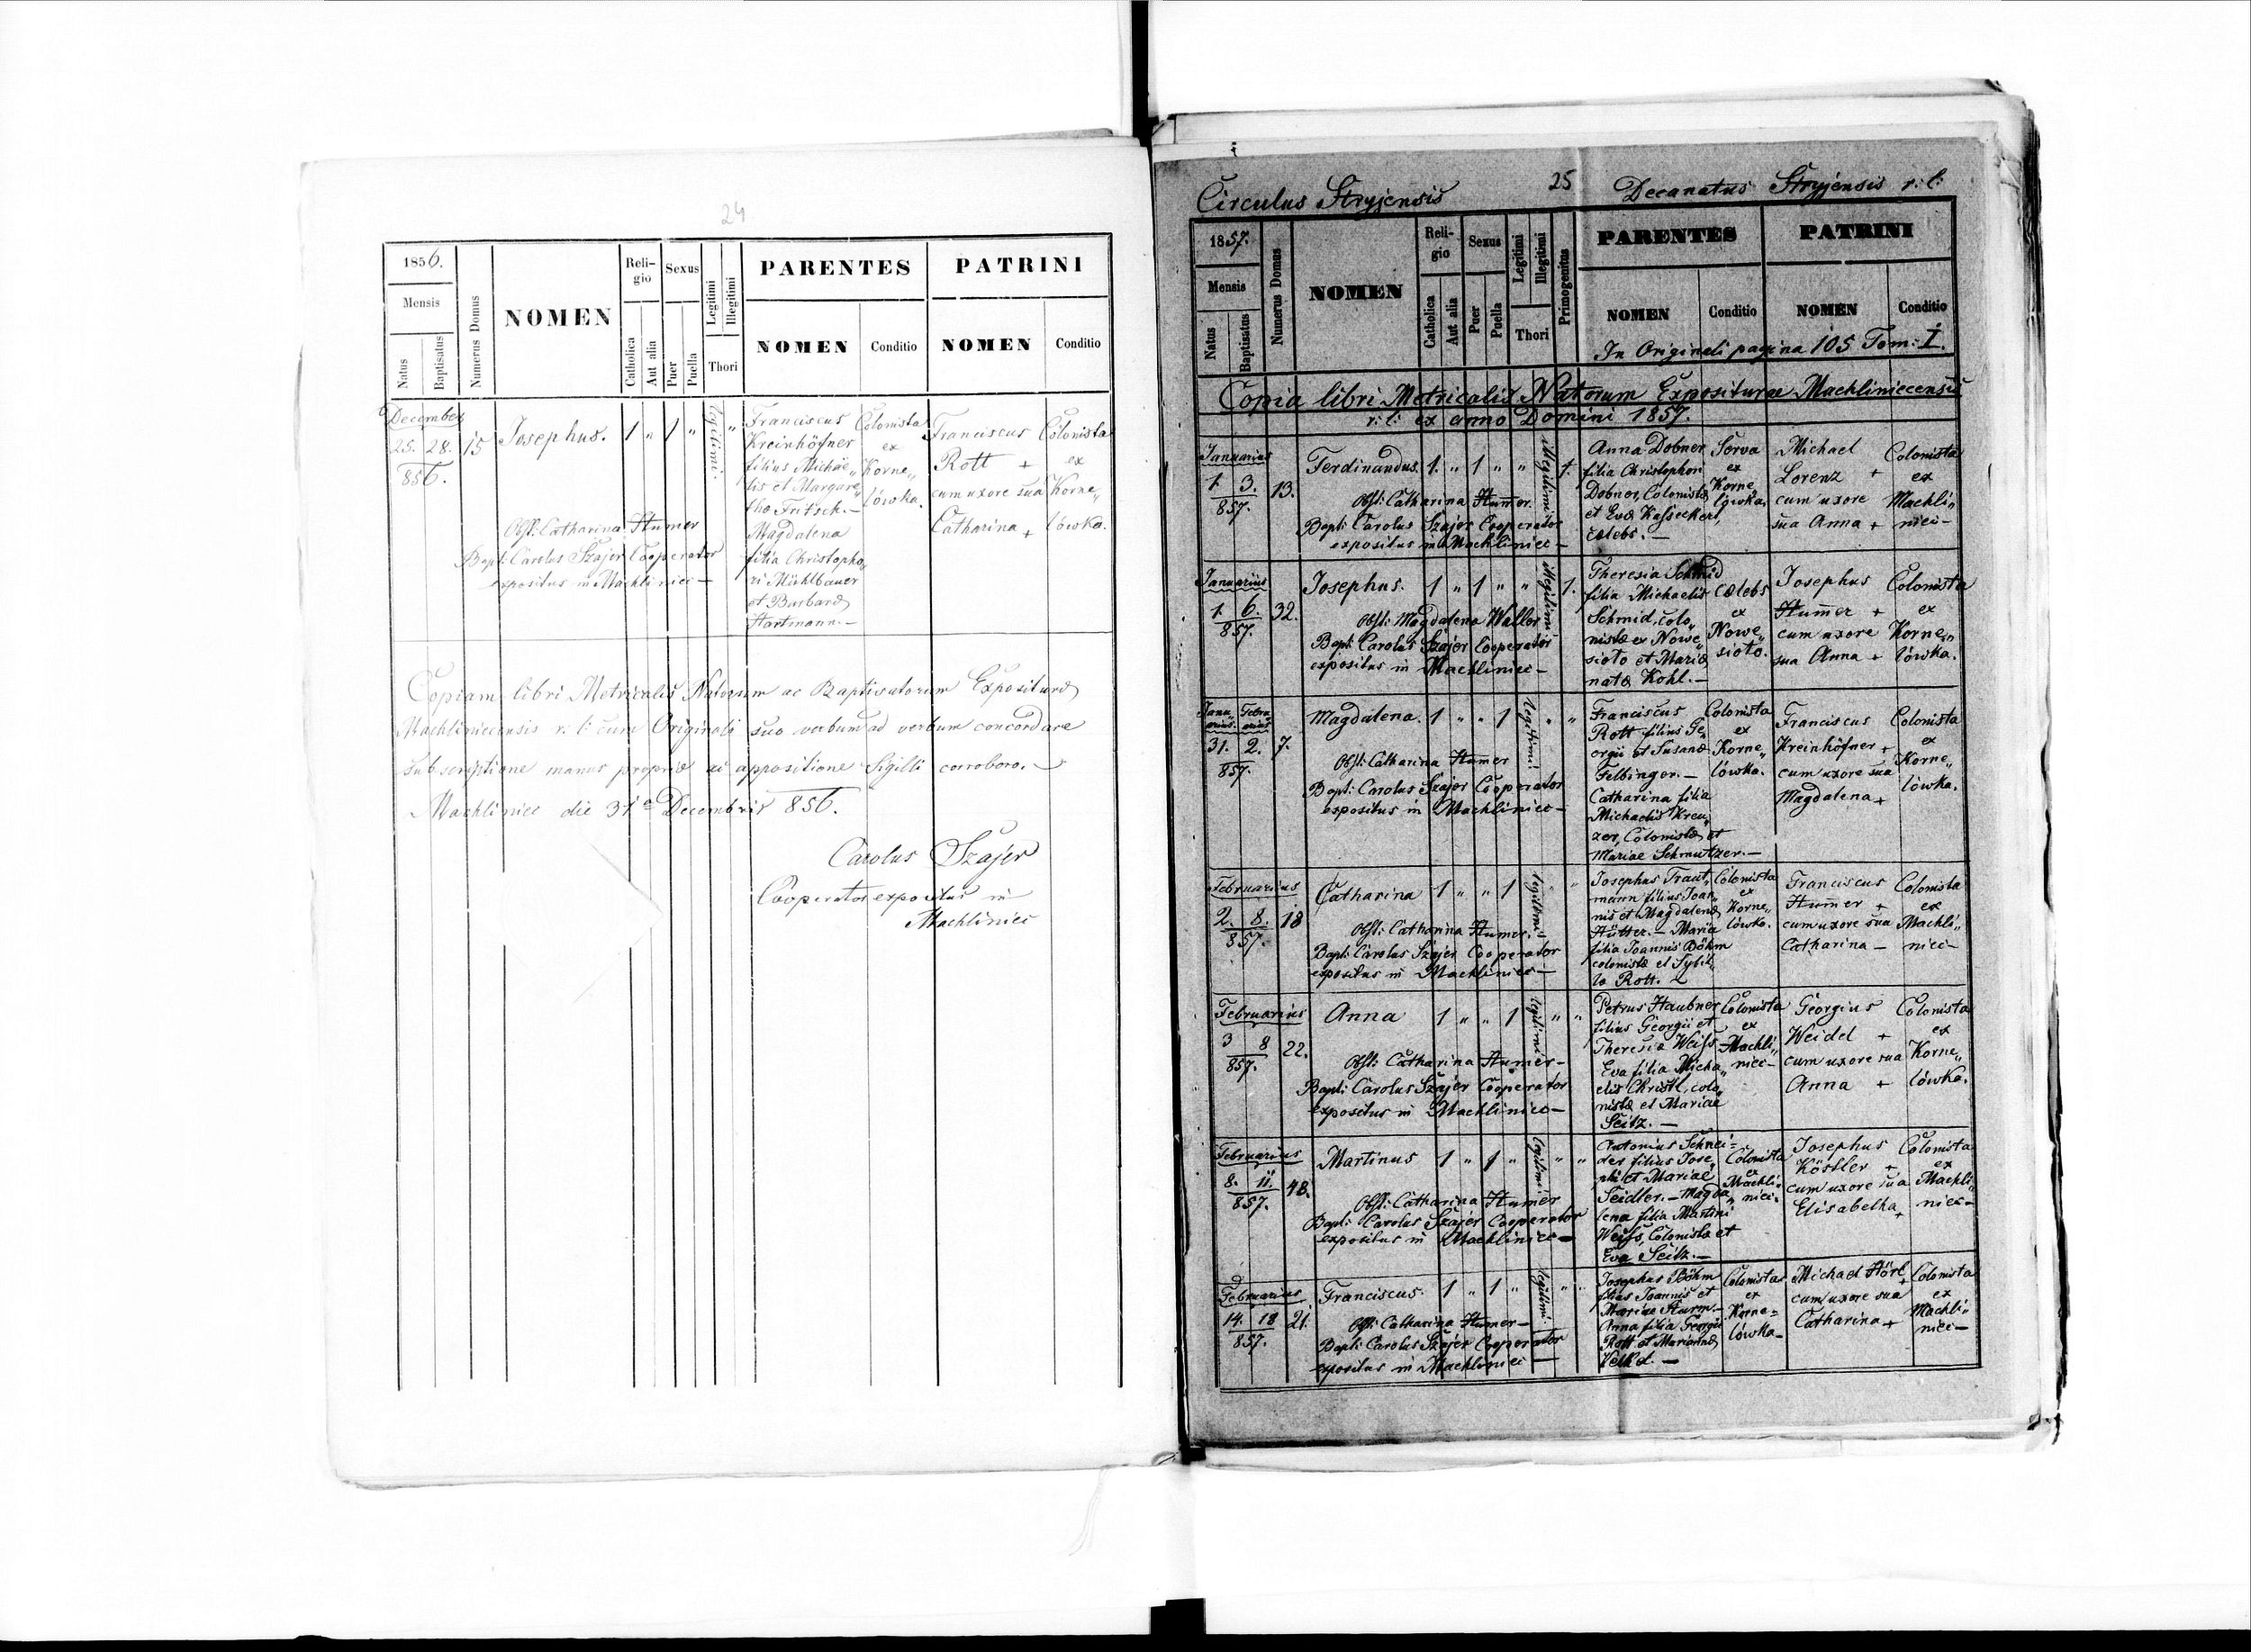 24
1856.
Mensis
Natus
Baptisatus
Numerus Domus
NOMEN
Reli-
gio
Catholica
Aut alia
Sexus
Puer
Puella
Legitimi
Illegitimi
Thori
PARENTES
NOMEN
Conditio
PATRINI
NOMEN
Conditio
December
25. 28. 15
856.
Josephus. 1 " 1 "
legitimi
"
Obst: Catharina Humer
Bapt: Carolus Szajer Cooperator
expositus in Machliniec —
Franciscus
Kreinhöfner
filius Michae„
lis et Margare„
tha Fritsch. —
Magdalena
filia Christopho„
ri Mühlbauer
et Barbarae
Hartmann. —
Colonista
ex
Korne„
lówka.
Franciscus
Rott +
cum uxore sua
Catharina +
Colonista
ex
Korne„
lówka.
Copiam libri Metricalis Natorum ac Baptisatorum Expositurae
Machliniecensis r: l: cum Originali suo verbum ad verbum concordare
subscriptione manus propriae ac appositione Sigilli corroboro. —
Machliniec die 31a Decembris 856.
Carolus Szajer
Cooperator expositus in
Machliniec
Circulus Stryjensis
25
Decanatus Stryjensis r: l:
1857.
Mensis
Natus
Baptisatus
Numerus Domus
NOMEN
Reli-
gio
Catholica
Aut alia
Sexus
Puer
Puella
Legitimi
Illegitimi
Thori
Primogenitus
PARENTES
NOMEN
Conditio
PATRINI
NOMEN
Conditio
In Originali pagina 105 Tom: I.
Copia libri Metricalis Natorum Expositurae Machliniecensis
r: l: ex anno Domini 1857.
Januarius
1. 3. 13.
857.
Ferdinandus. 1. " 1 " "
illegitimi
1.
Obst: Catharina Humer.
Bapt: Carolus Szajer Cooperator
expositus in Machliniec —
Anna Dobner
filia Christophori
Dobner, Colonistae
et Evae Kasseckert,
caelebs. —
Serva
ex
Korne„
lówka.
Michael
Lorenz +
cum uxore
sua Anna +
Colonista
ex
Machli„
niec —
Januarius
1. 6. 32.
857.
Josephus. 1 " 1 " "
illegitimi
1.
Obst: Magdalena Waller
Bapt: Carolus Szajer Cooperator
expositus in Machliniec —
Theresia Schmid
filia Michaelis
Schmid, colo„
nistae ex Nowe„
sioło et Mariae
natae Kohl. —
caelebs
ex
Nowe„
sioło.
Josephus
Humer +
cum uxore
sua Anna +
Colonista
ex
Korne„
lówka.
Janu„ Febru„
arius arius
31. 2. 7.
857.
Magdalena. 1 " " 1
legitimi
" "
Obst: Catharina Humer
Bapt: Carolus Szajer Cooperator
expositus in Machliniec —
Franciscus
Rott filius Ge„
orgii et Susanae
Felbinger. —
Catharina filia
Michaelis Kreu„
zer, Colonistae et
Mariae Schmutzer. —
Colonista
ex
Korne„
lówka.
Franciscus
Kreinhöfner +
cum uxore sua
Magdalena +
Colonista
ex
Korne„
lówka.
Februarius
2. 8. 18
857.
Catharina 1 " " 1
legitimi
" "
Obst: Catharina Humer.
Bapt: Carolus Szajer Cooperator
expositus in Machliniec —
Josephus Traut„
mann filius Joan„
nis et Magdalenae
Hütter. — Maria
filia Joannis Böhm
colonistae et Sybil„
la Rott. —
Colonista
ex
Korne„
lówka.
Franciscus
Humer +
cum uxore sua
Catharina —
Colonista
ex
Machli„
niec —
Februarius
3 8 22.
857.
Anna 1 " " 1
legitimi
" "
Obst: Catharina Humer —
Bapt: Carolus Szajer Cooperator
expositus in Machliniec —
Petrus Haubner
filius Georgii et
Theresia Weiss
Eva filia Micha„
elis Christl, colo„
nistae et Mariae
Seitz. —
Colonista
ex
Machli„
niec —
Georgius
Weidel +
cum uxore sua
Anna +
Colonista
ex
Korne„
lówka.
Februarius
8. 11. 48.
857.
Martinus 1 " 1 "
legitimi
" "
Obst: Catharina Humer
Bapt: Carolus Szajer Cooperator
expositus in Machliniec —
Antonius Schnei=
der filius Jose„
phi et Mariae
Seidler. — Magda„
lena filia Martini
Weiss, Colonistae et
Eva Seitz. —
Colonista
ex
Machli„
niec.
Josephus
Köstler +
cum uxore sua
Elisabetha +
Colonista
ex
Machli„
niec —
Februarius
14. 18 21.
857.
Franciscus. 1 " 1 "
legitimi
" "
Obst: Catharina Humer —
Bapt: Carolus Szajer Cooperator
expositus in Machliniec —
Josephus Böhm
filius Joannis et
Mariae Sturm. —
Anna filia Georgii
Rott et Mariannae
Colonista
ex
Korne=
lówka —
Michael Hörl +
cum uxore sua
Catharina +
Colonista
ex
Machli„
niec —